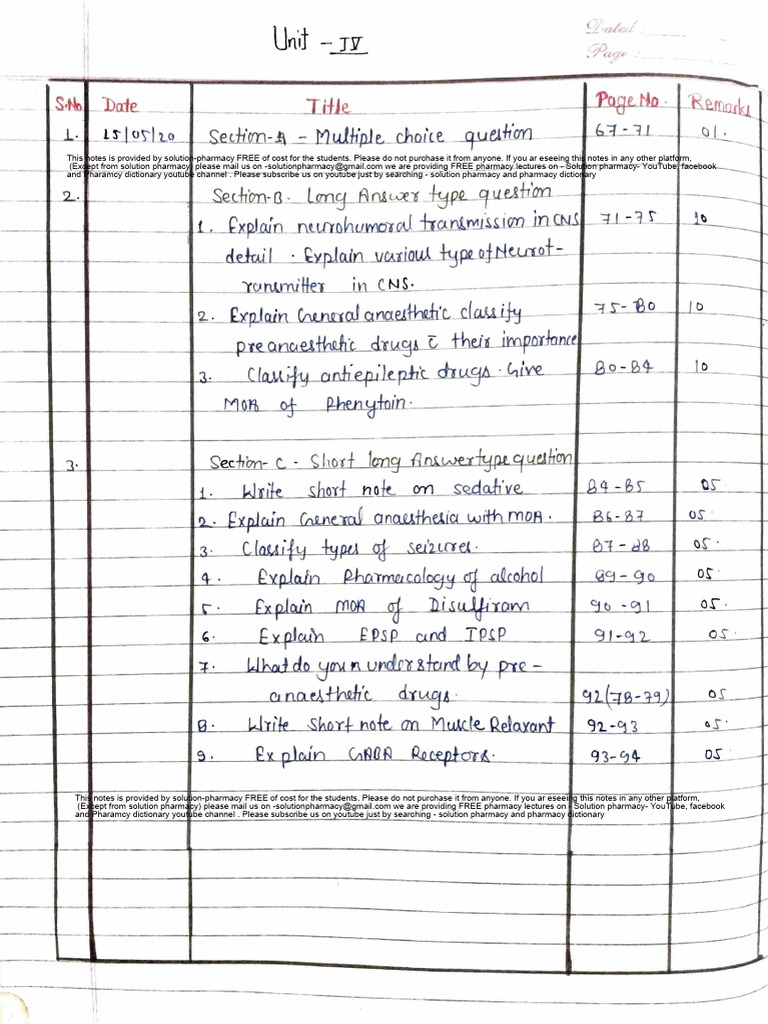 Unit - IV
Dated :
Page :
S.No. Date Title Page No. Remarks
1. 15/05/20 Section-A - Multiple choice question 67-71 01.
This notes is provided by solution-pharmacy FREE of cost for the students. Please do not purchase it from anyone. If you ar eseeing this notes in any other platform,
(Except from solution pharmacy) please mail us on -solutionpharmacy@gmail.com we are providing FREE pharmacy lectures on - Solution pharmacy- YouTube, facebook
and Pharamcy dictionary youtube channel . Please subscribe us on youtube just by searching - solution pharmacy and pharmacy dictionary
2. Section-B. Long Answer type question
1. Explain neurohumoral transmission in CNS 71-75 10
detail . Explain various type of Neurot-
ransmitter in CNS.
2. Explain General anaesthetic classify 75-80 10
preanaesthetic drugs c̄ their importance
3. Classify antiepileptic drugs. Give 80-84 10
MOA of Phenytoin.
3. Section- C - Short long Answer type question
1. Write short note on sedative 84-85 05
2. Explain General anaesthesia with MOA. 86-87 05.
3. Classify types of seizures. 87-88 05.
4. Explain Pharmacology of alcohol 89-90 05.
5. Explain MOA of Disulfiram 90-91 05.
6. Explain EPSP and IPSP 91-92 05.
7. What do you n understand by pre-
anaesthetic drugs. 92(78-79) 05
8. Write short note on Muscle Relaxant 92-93 05.
9. Explain GABA Receptors. 93-94 05.
This notes is provided by solution-pharmacy FREE of cost for the students. Please do not purchase it from anyone. If you ar eseeing this notes in any other platform,
(Except from solution pharmacy) please mail us on -solutionpharmacy@gmail.com we are providing FREE pharmacy lectures on - Solution pharmacy- YouTube, facebook
and Pharamcy dictionary youtube channel . Please subscribe us on youtube just by searching - solution pharmacy and pharmacy dictionary